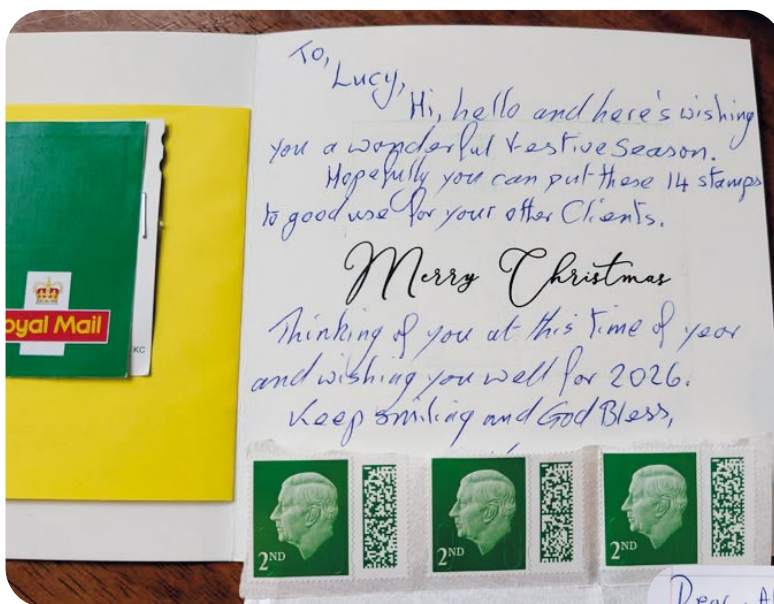 To,
Lucy,
Hi, hello and here's wishing
you a wonderful Festive Season.
Hopefully you can put these 14 stamps
to good use for your other Clients.
Merry Christmas
Thinking of you at this time of year
and wishing you well for 2026.
Keep smiling and God Bless,
oyal Mail
KC
2ND
2ND
2ND
Dear